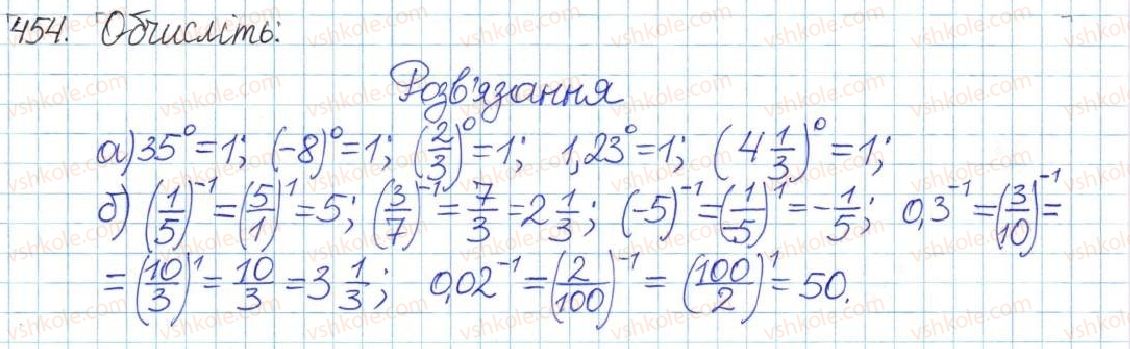 454. Обчисліть:
Розв'язання
а) 35⁰ = 1; (-8)⁰ = 1; (2/3)⁰ = 1; 1,23⁰ = 1; (4 1/3)⁰ = 1;
б) (1/5)⁻¹ = (5/1)¹ = 5; (3/7)⁻¹ = 7/3 = 2 1/3; (-5)⁻¹ = (1/-5)¹ = -1/5; 0,3⁻¹ = (3/10)⁻¹ =
= (10/3)¹ = 10/3 = 3 1/3; 0,02⁻¹ = (2/100)⁻¹ = (100/2)¹ = 50.